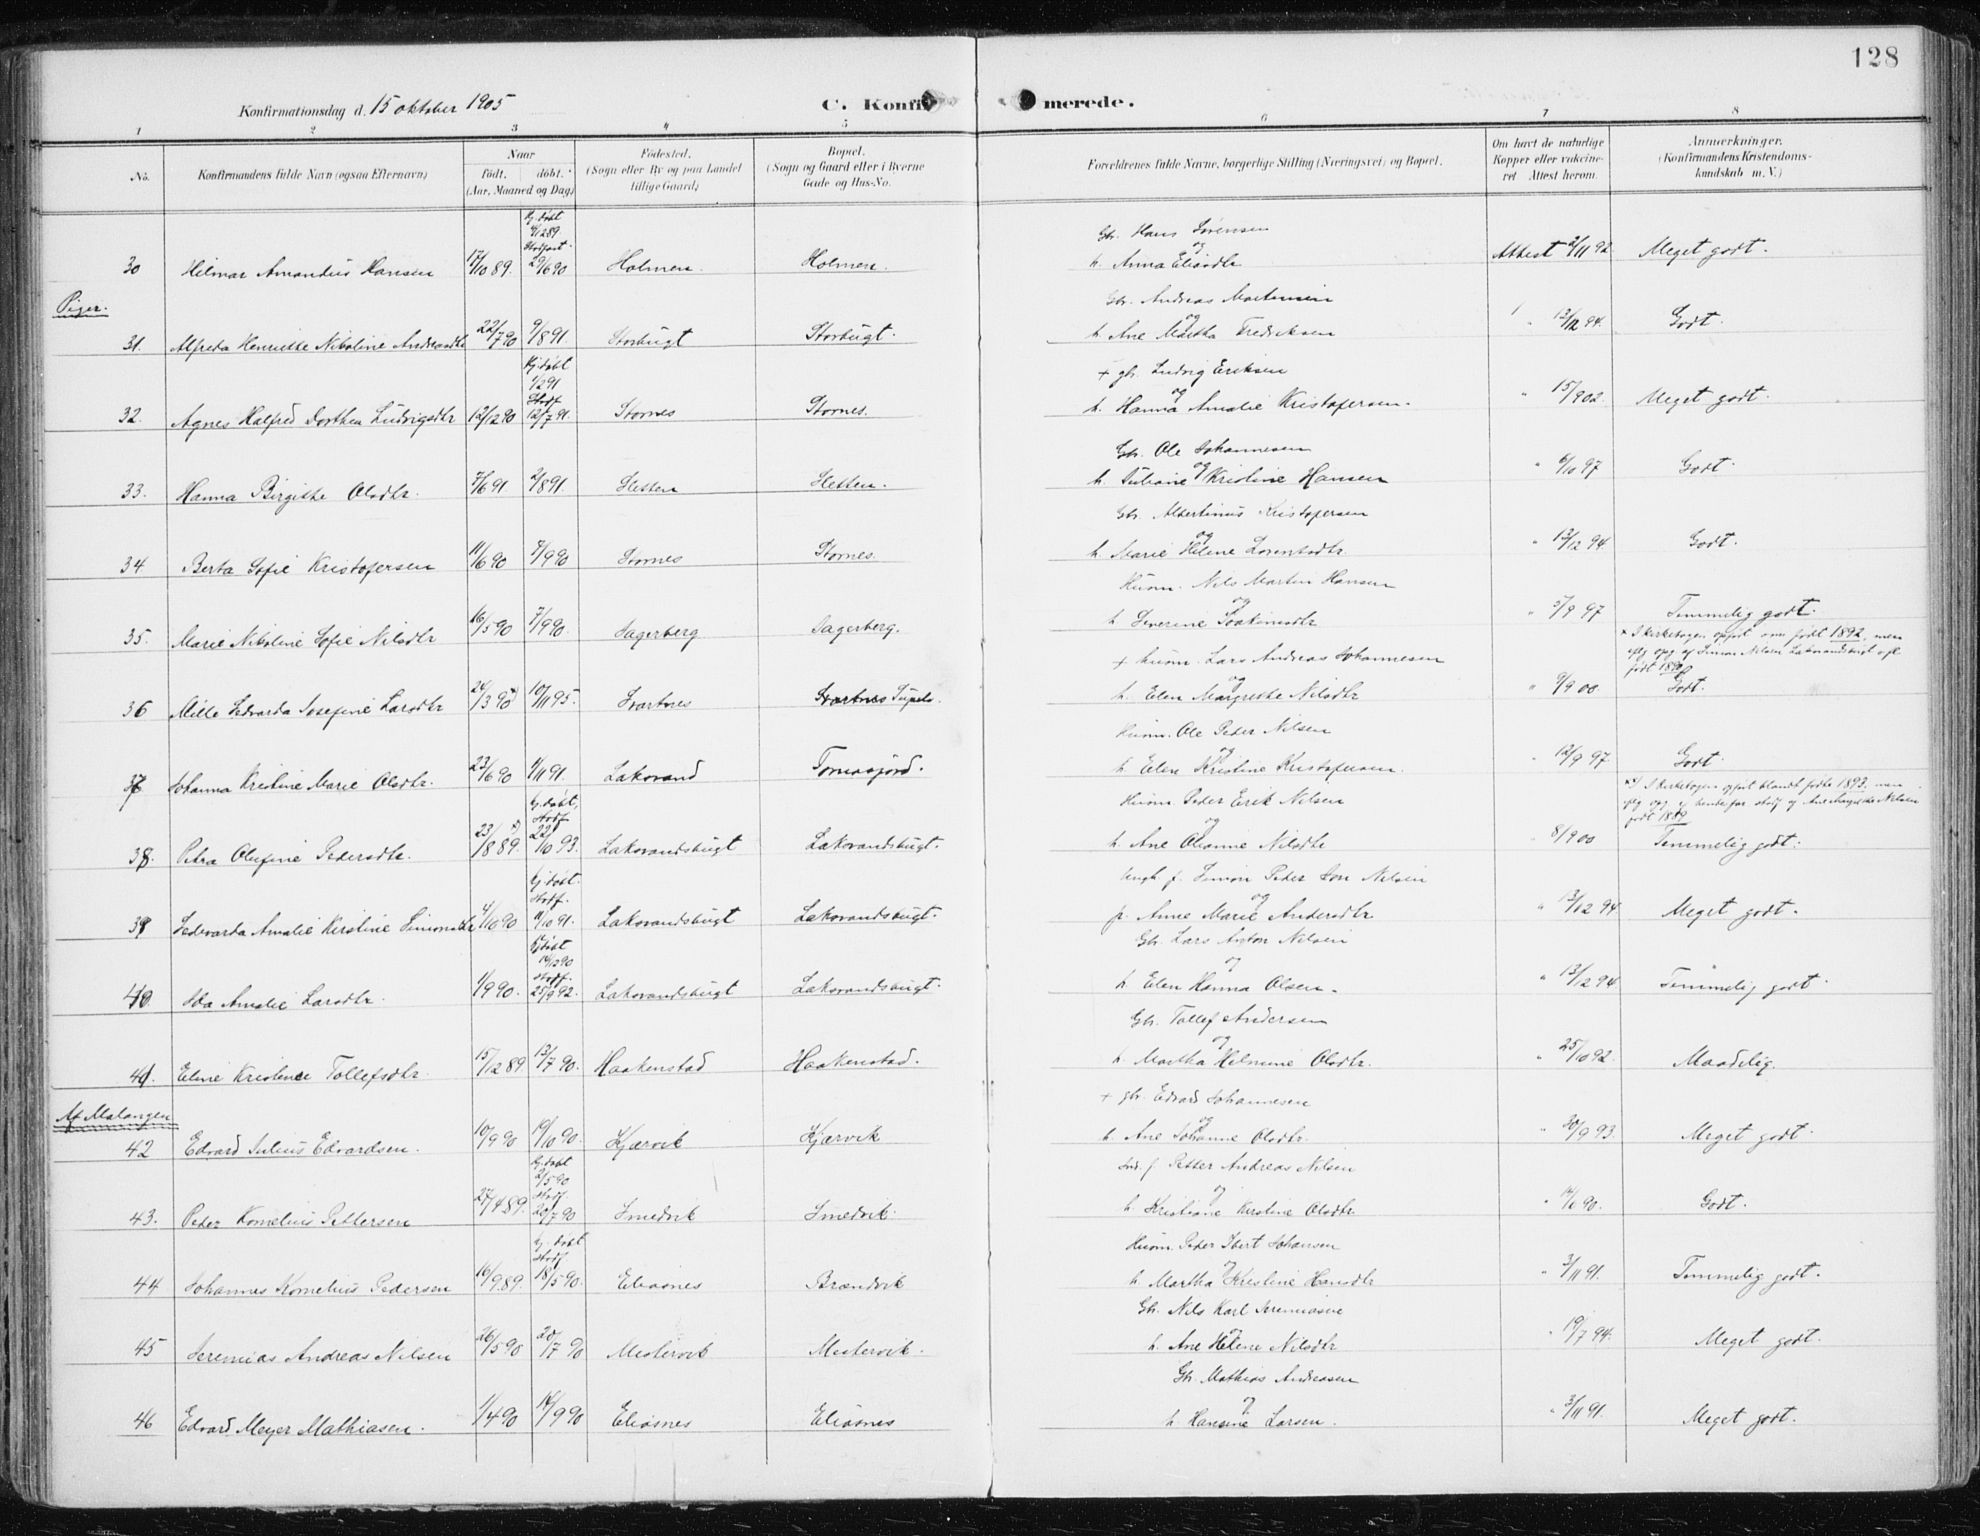 128
Konfirmationsdag d. 15 oktober 1905
C. Konfirmerede.
1 2 3 4 5 6 7 8
No. Konfirmandens fulde Navn (ogsaa Efternavn) Naar födt. döbt. (Aar, Maaned og Dag) Födested. (Sogn eller By og paa Landet tillige Gaard) Bopæl. (Sogn og Gaard eller i Byerne Gade og Hus-No. Forældrenes fulde Navne, borgerlige Stilling (Næringsvei) og Bopæl. Om havt de naturlige Kopper eller vaksineret Attest herom. Anmærkninger. (Konfirmandens Kristendomskundskab m. V.)
Hj. døbt
Gbr. Hans Sørensen
og
30 Hilmar Amandus Hansen 17/10 89. 29/6 90 Holmen. Holmen. h. Anna Eliasdtr Attest 2/11 92 Meget godt.
Piger.
Gbr. Andreas Martinsen
og
31. Alfreda Henrikke Nikoline Andreasdtr 22/7 90 9/8 91. Storbugt Storbugt. h. Ane Martha Fredriksen " 13/12 94. Godt.
Hj. døbt
1/2 91
Stadf.
+ gbr. Ludvig Eriksen
og
32. Agnes Halfred Dorthea Ludvigsdtr 12/12 90 12/7 91. Stornes Stornes. h. Hanna Amalie Kristofersen. " 15/9 02. Meget godt.
Gbr. Ole Johannesen
og
33. Hanna Birgitte Olsdtr. 7/6 91 2/8 91. Sletten Sletten. h. Juliane Kristine Hansen " 6/10 97 Godt.
Gbr. Albertinus Kristofersen
og
34 Berta Sofie Kristofersen 11/6 90 7/9 90 Stornes Stornes. h. Marie Helene Lorentsdtr. " 13/12 94 Godt.
Husm. Nils Martin Hansen
og
35. Marie Nikoline Sofie Nilsdtr 16/5 90 7/9 90. Sagerberg Sagerberg. h. Severine Joakimsdtr " 5/9 97 Temmelig godt.
× I kirkebogen opført som født 1892, men
+ husm. Lars Andreas Johannesen
og
36 Mille Edvarda Josefine Larsdtr 24/3 90 10/11 95. Svartnes Svartnes h. Elen Margrethe Nilsdtr " 9/9 00 Godt.
Husm. Ole Peder Nilsen
og
37 Johanna Kristine Marie Olsdtr. 23/6 90 1/11 91. Laksvand Tomasjord. h. Elen Kristine Kristofersen. " 12/9 97 Godt.
Hj. døbt,
Stadf.
Husm Peder Erik Nilsen
og
× I kirkebogen opført blandt fødte 1893, men
født 1889
38. Petra Olufine Pedersdtr. 23/8 89. 22/10 93. Laksvandsbugt Laksvandsbugt. h. Ane Oleanne Nilsdtr " 8/9 00 Temmelig godt.
Hj. døbt.
Stadf.
Ungk. f. Simon Peder Nilsen
og
39 Edevarda Amalie Kirstine Simonsdtr 4/10 90 11/10 91. Laksvandsbugt Laksvandsbugt. p. Anne Marie Andersdtr " 13/12 94 Meget godt.
Hj. døbt
14/12 90
Stadf.
Gbr. Lars Anton Nilsen
og
40 Ida Amalie Larsdtr. 1/9 90. 25/9 92. Laksvandsbugt Laksvandsbugt. h. Elen Hanna Olsen. " 13/12 94 Temmelig godt.
Gbr. Tollef Andersen
og
41. Eline Kristine Tollefsdtr. 15/12 89 13/7 90. Haakenstad Haakenstad. h. Martha Helmine Olsdtr. " 25/10 92. Maadelig.
Af Malangen
+ gbr. Edvard Johannesen
og
42 Edvard Julius Edvardsen. 10/9 90 19/10 90. Kjærvik Kjærvik h. Ane Johanne Olsdtr. " 30/9 93. Meget godt.
Hj. døbt
2/5 90
Stadf.
Petter Andreas Nilsen
og
43. Peder Kornelius Pettersen 27/4 89. 20/7 90 Smedvik Smedvik. h. Kristiane Kirstine Olsdtr " Godt.
Hj. døbt
Stadf
Husm. Peder Ibert Johansen
og
44 Johannes Kornelius Pedersen 16/9 89. 18/5 90. Eliasnes Brændvik h. Martha Kristine Hansdtr " 3/11 91. Temmelig godt.
Gbr. Nils Karl Jeremiasen
og
45 Jeremias Andreas Nilsen 26/5 90 20/7 90 Mestervik Mestervik. h. Ane Helene Nilsdtr " 19/7 94. Meget godt.
Gbr. Mathias Andreasen
og
46 Edvard Meyer Mathiasen. 1/4 90 14/9 90 Eliasnes Eliasnes h. Hansine Larsen. " 3/11 91. Meget godt.